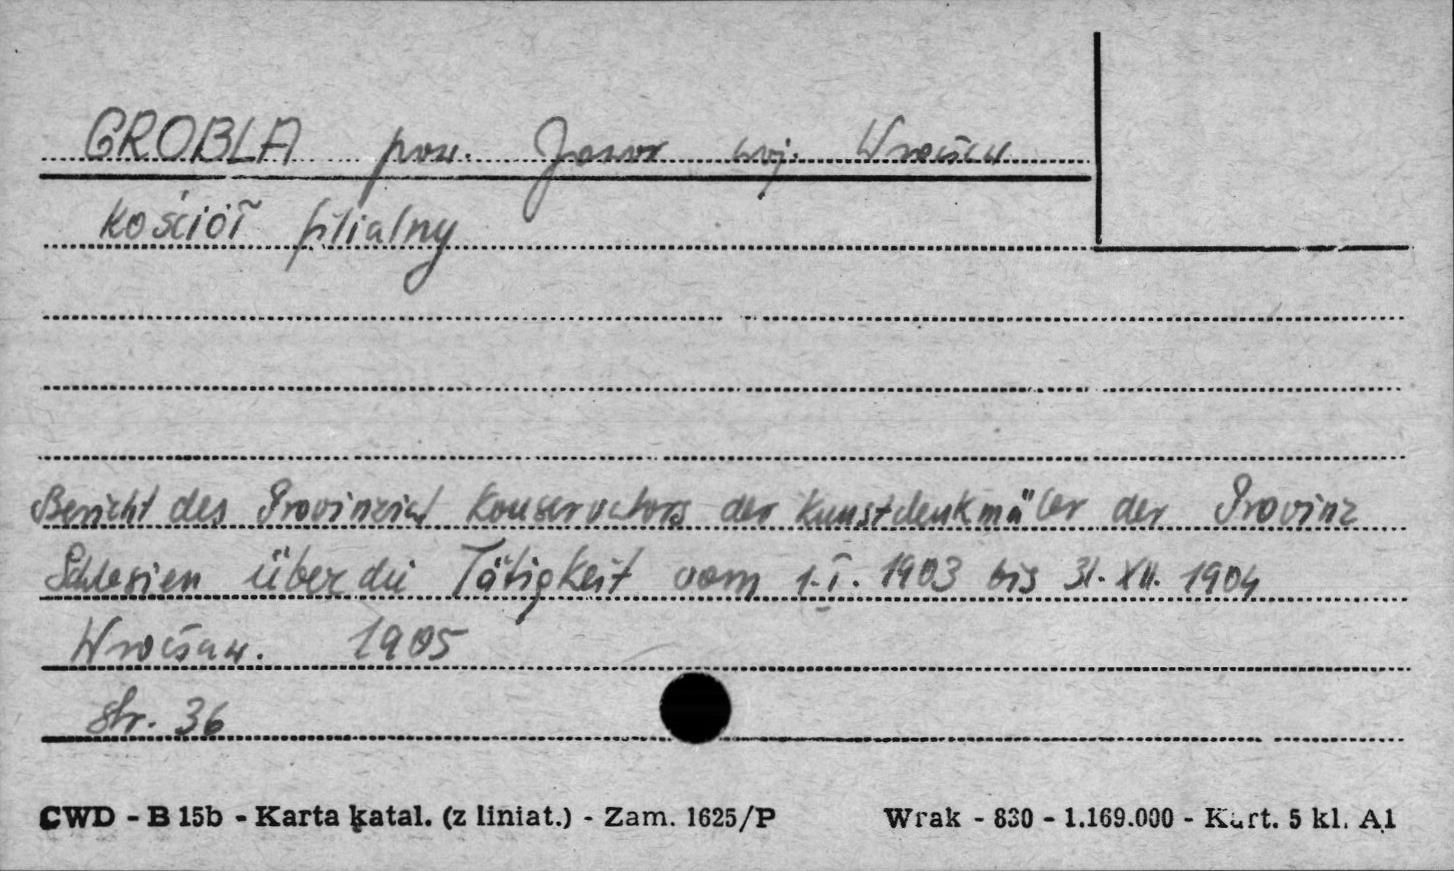 GROBLA pow. Jawor woj. Wrocław
kościół filialny
Bericht des Provinzial Konservators der Kunstdenkmäler der Provinz
Schlesien über die Tätigkeit vom 1.I. 1903 bis 31. XII. 1904
Wrocław. 1905
str. 36
CWD - B 15b - Karta katal. (z liniat.) - Zam. 1625/P Wrak - 830 - 1.169.000 - Kart. 5 kl. A1